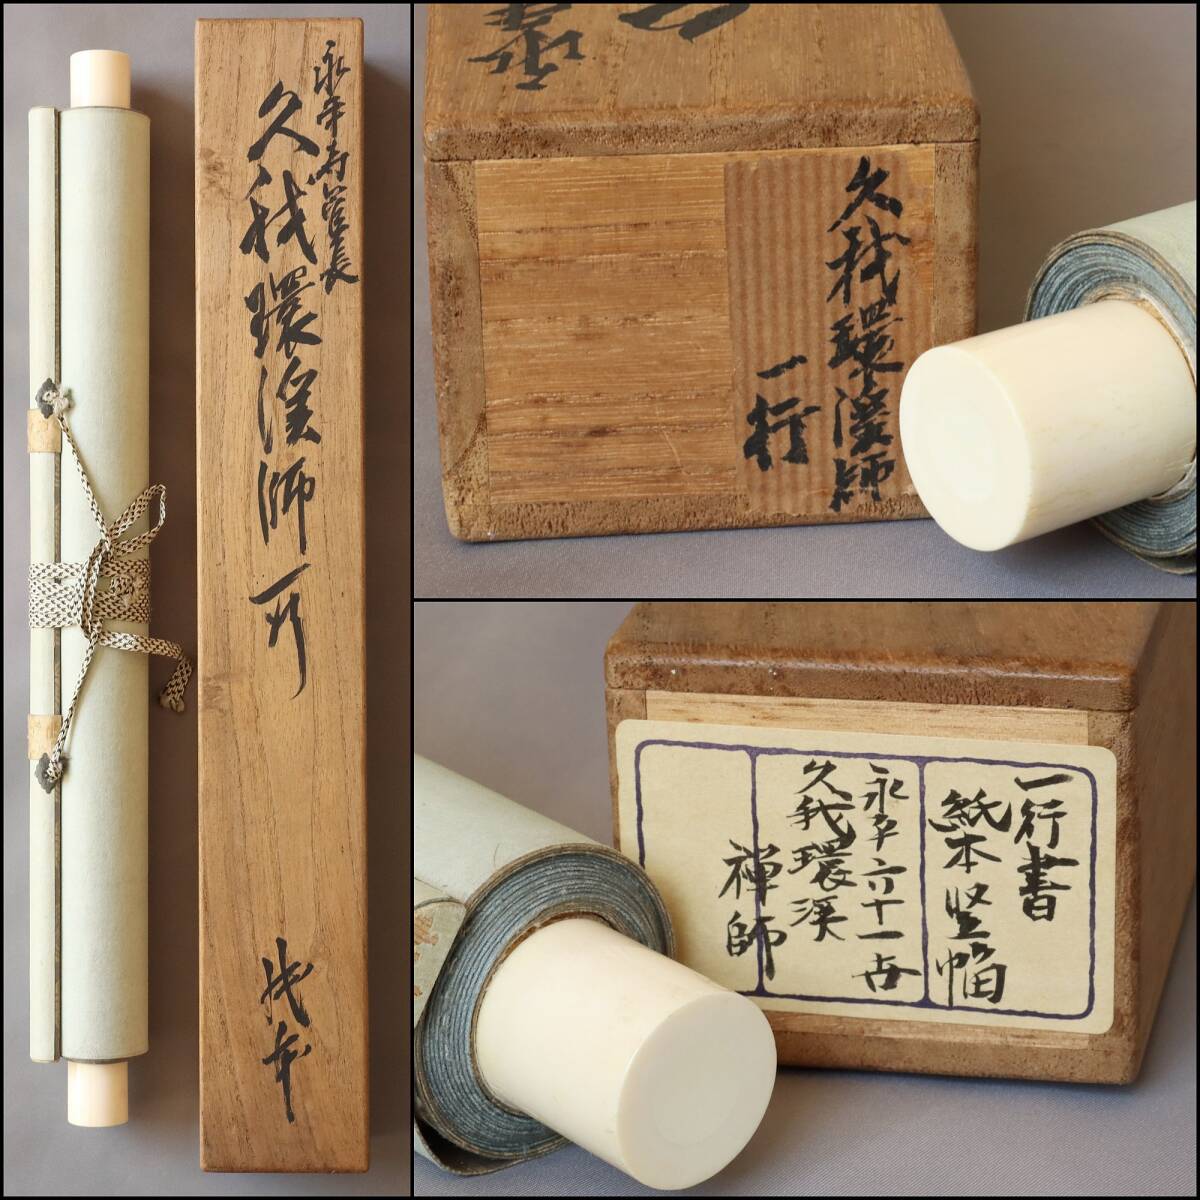 永平寺管長
久我環渓師一行
紙本
永平
久我環渓師
一行
一行書
紙本竪幅
永平六十一世
久我環渓
禅師